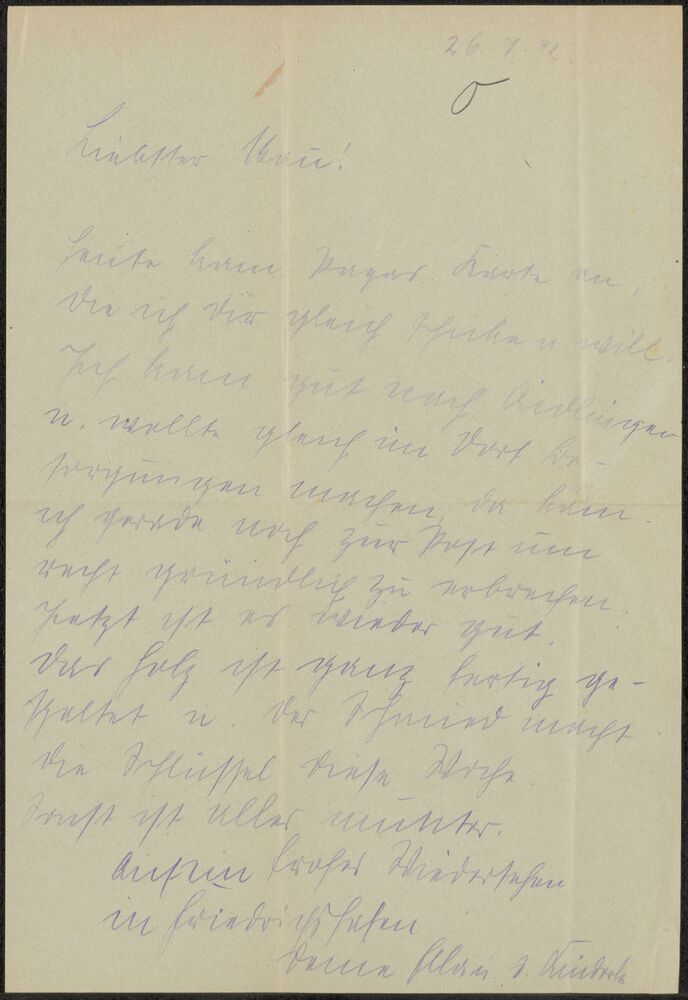 26. 1. 42
Liebster Mau!
heute kam Papas Karte an,
die ich dir gleich schicken will.
Ich kam gut nach Aidlingen
u. wollte gleich im Dorf Be-
sorgungen machen, da kam
ich gerade noch zur Post um
recht gründlich zu erbrechen.
Jetzt ist es wieder gut.
Das Holz ist ganz fertig ge-
spaltet u. der Schmied macht
die Schlüssel diese Woche.
Sonst ist alles munter.
Auf ein frohes Wiedersehen
in Friedrichshafen
Deine